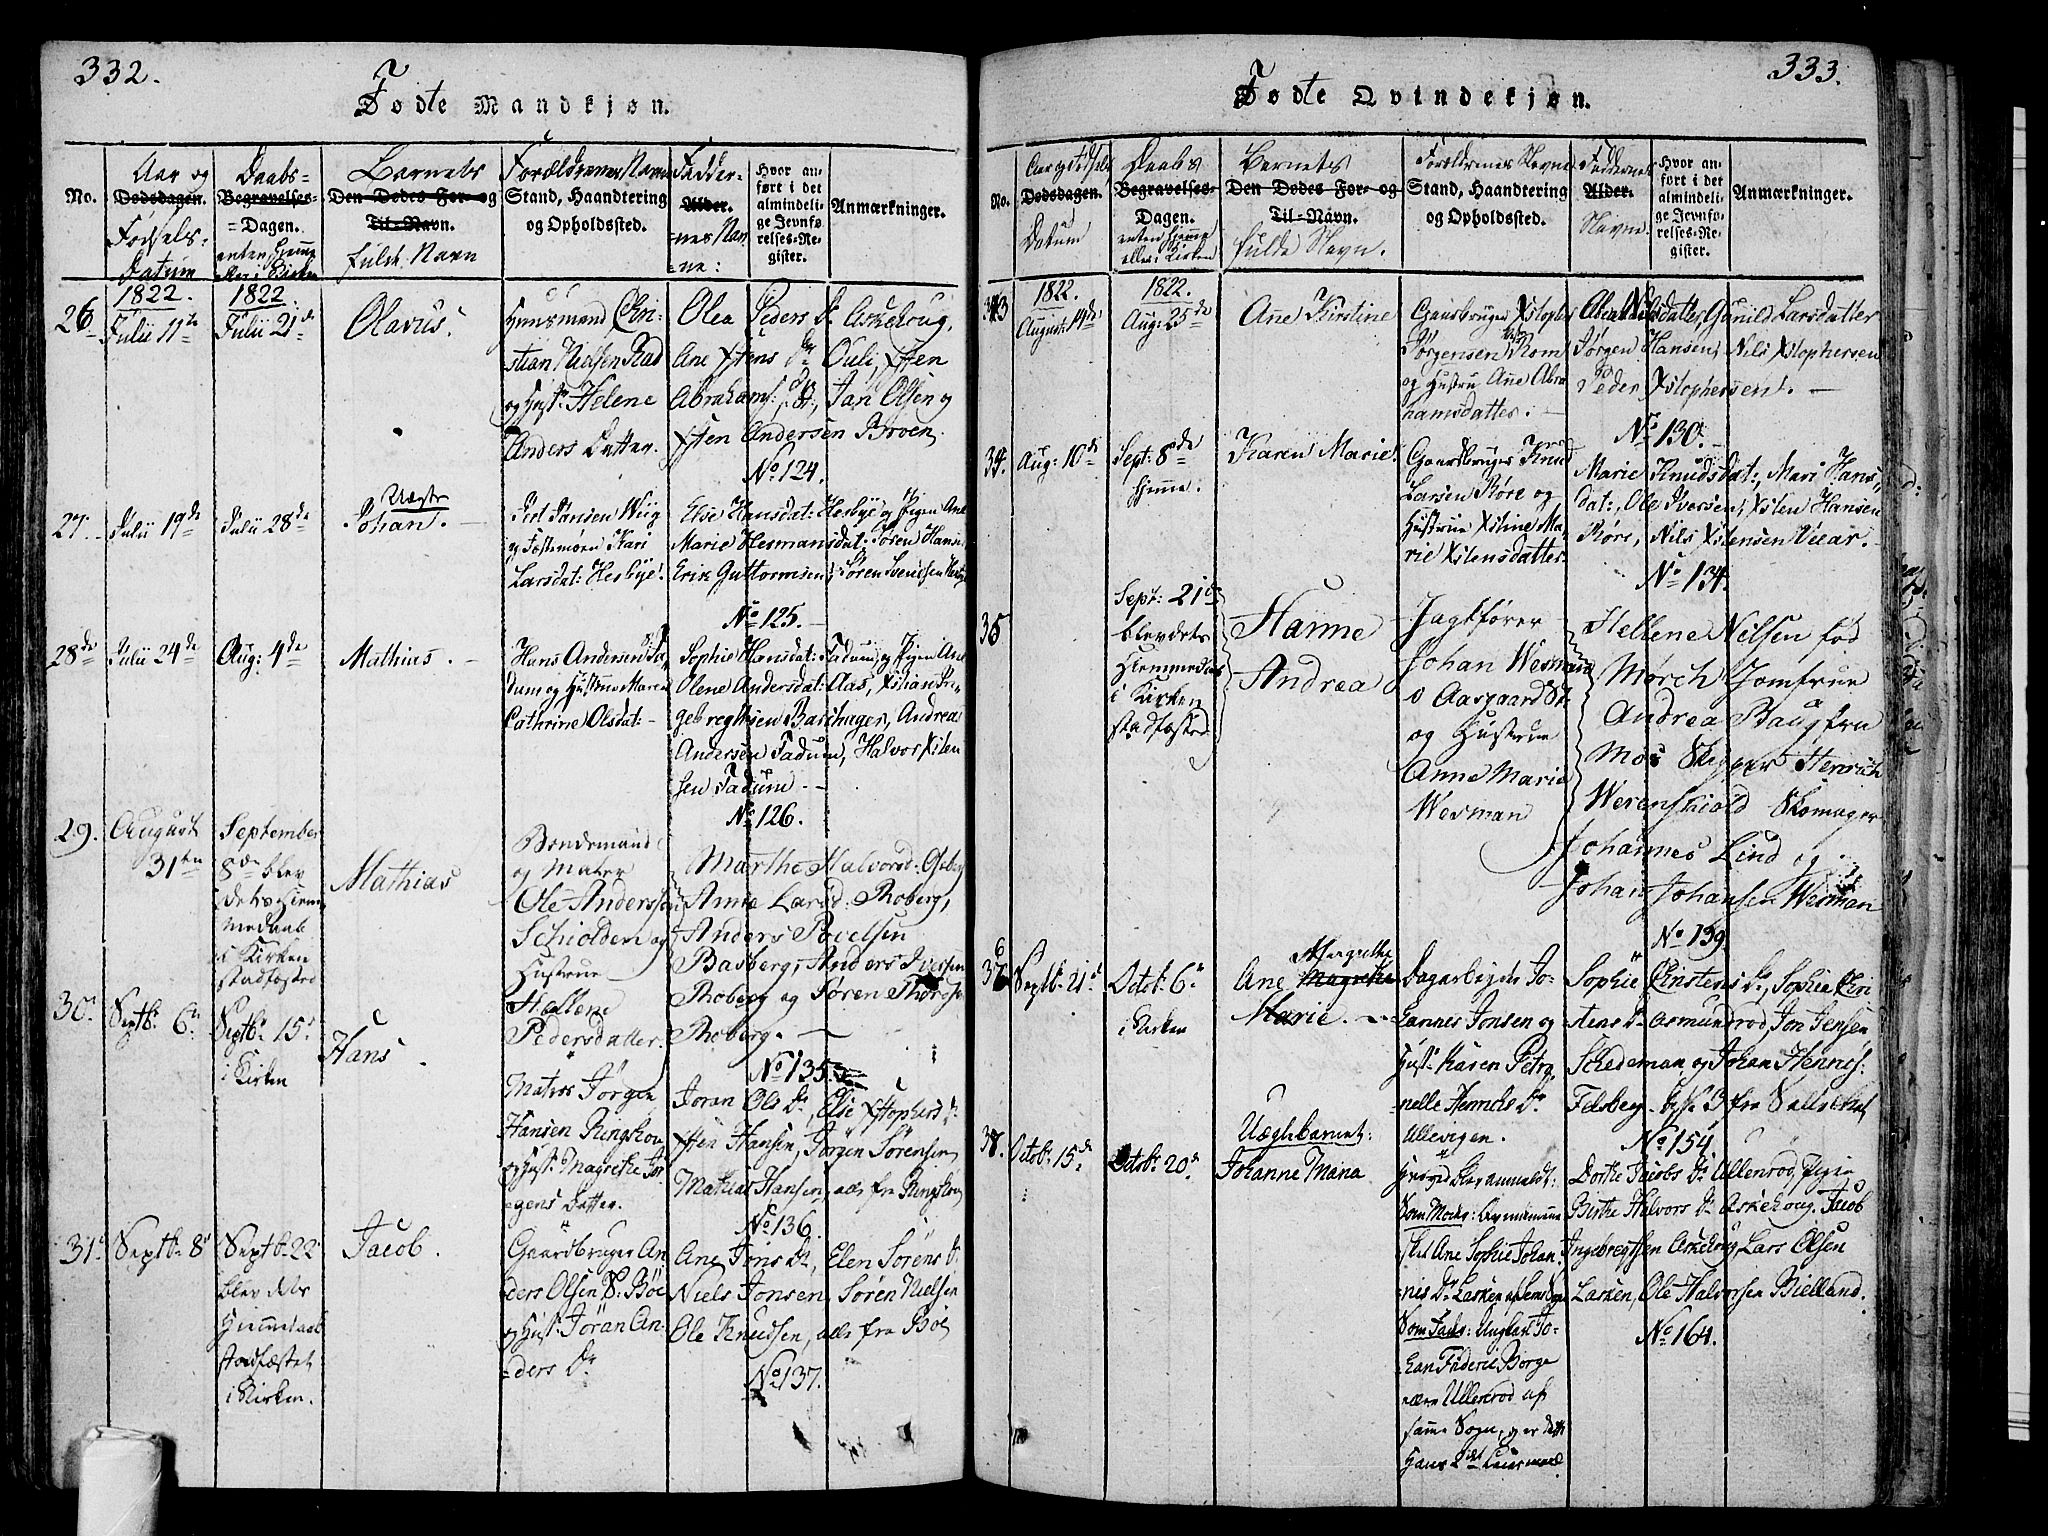 332.
Fødte Mandkjøn.
No.
Aar og
Dødsdagen.
Fødsels-
Datum
Daabs-
Begravelses-
Dagen.
enten hjemme
eller i Kirken
Barnets
Den Dødes For- og
Til-Navn.
fulde Navn
Forældrenes Navn
Stand, Haandtering
og Opholdssted.
Fadder-
Alder.
nes Nav-
ne:
Hvor an-
ført i det
almindeli-
ge Jevnfø-
relses-Re-
gister.
Anmærkninger.
26
1822.
Julii 11te
1822.
Julii 21de
Olavus.
Huusmand Chri-
stian Nielsen Rad
og Hust: Helene
Anders Datter.
Olea Peders Dr Askehoug,
Ane Xstens Dr Ouli, Xsten
Abrahams: , Jan Olsen og
Xsten Andersen Broen.
No 124.
27.
Julii 19de
Julii 28de
Uægte
Johan.
Jansen Wiig
og Fæstemøen Kari
Larsdat: Hesbye.
Else Hansdat: Hesbye og Pigen Ane
Marie Hermansdat: Søren Hans:
Erik Guttormsen, Søren Svendsen
No 125.
28de
Julii 24de
Aug: 4de
Mathias.
Hans Andersen Fa-
dum og Hustrue Maren
Cathrine Olsdat:
Sophie Hansdat: Fadum, og Pigen Anne
Olene Andersdat: Aas, Xstian In-
gebregtsen Barhager, Andreas
Andersen Fadum, Halvor Xsten
sen Fadum.
No 126.
29.
August
31ten
September
8de blev
dets Hiem-
medaab
i Kirken
stadfæstet
Mathias
Bondemand
og Mater
Ole Anderssen
Schiolden og
Hustrue
Hellene
Pedersdatter.
Marthe Halvorsd: Gieberg
Anne Larsd: Roberg,
Anders Povelsen
Basberg, Anders Iversen
Roberg og Søren Thores:
Roberg.
No 135
30.
Septbr 6te
Septbr 15de
i Kirken
Hans
Matros Jørgen
Hansen Ringshou
og Hust: Magrethe Jør-
gens Datter.
Joran Ols Dr, Else Xstophers Dr
Xsten Hansen, Jørgen Sørensen,
Mathias Hansen, alle fra Ringshou
No 136
31.
Septbr 8de
Septbr 22
blev dets
Hiemmedaab
stadfæstet
i Kirken.
Jacob.
Gaardbruger An-
ders Olsen V: Bøe
og Hust: Jøran An-
ders Dr
Ane Jons Dr, Elen Sørens Dr
Niels Jonsen, Søren Nielsen
Ole Knudsen, alle fra Bøe
No 137.
333.
Fødte Qvindekjøn.
No.
Aar og Fødsels
Dødsdagen.
Datum
Daabs
Begravelses-
Dagen.
enten hjemme
eller i Kirken
Barnets
Den Dødes For- og
Til-Navn.
fulde Navn.
Forældrenes Navne
Stand, Haandtering
og Opholdssted.
Faddernes
Alder.
Navne.
Hvor an-
ført i det
almindeli-
ge Jevnfø-
relses-Re-
gister.
Anmærkninger.
33
1822.
August 19de
1822.
Aug: 25de
Ane Kirstine
Gaardbruger Xstopher
Jørgensen Rom
og Hustru Ane Abra
hamsdatter.
Nielsdatter, Gunild Larsdatter
Jørgen Hansen, Nils Xstophersen
Peder Xstophersen.
No 130.
34.
Aug: 10de
Sept: 8de
hjemme.
Karen Marie.
Gaardbruger Knud
Larsen Røre og
Hustrue Xstine Ma-
rie Xstensdatter
Marie Knudsdat:, Mari Hans-
dat:, Ole Iversen, Xsten Hansen
Røre, Nils Xstensen Viear.
No 134.
35
Sept: 21de
blev dets
Hjemmedaab
i Kirken
stadfæsted
Hanne
Andrea
Jagtfører
Johan Werman
Aasgaard
og Hustrue
Anne Marie
Werman
Hellene Nilsen fød
Mørch Jomfrue
Andrea Baug fru
Møs Skipper Henrich
Werenskiold Skomager
Johannes Lind og
Johan Johansen Werman
No 139
36
Septb: 21de
Octob: 6te
i Kirken
Ane Magrethe
Margrethe
Marie.
Dagarbejder Jo-
hannes Jonsen og
Hust: Karen Petro
nelle Henrichs Dr
Ullevigen.
Sophie Christens Dr, Sophie Chri
stens Dr Asmundrød, Jon Jensen
Schedeman, og Johan Henrichs:
Felsberg, begge 3 fra
No 154
37.
Octob: 15de
Octob: 20de
Uægtebarnet:
Johanne Maria
Hvortil blev anmeldt:
Som Moder:
Ane Sophie Johan-
nis Dr Lasken af
Som Fader: Ungkarl Jo-
han Fæderic Borge
Ullenrød af
samme Sogn, og er dette
Hans 2det Leiermaal
Dorthe Jacobs Dr Ullenrød, Pigen
Birthe Halvors Dr Askehoug, Jacob
Ingebregtsen Askehoug, Lars Olsen
Lasken, Ole Halvorsen Bielland.
No 164.